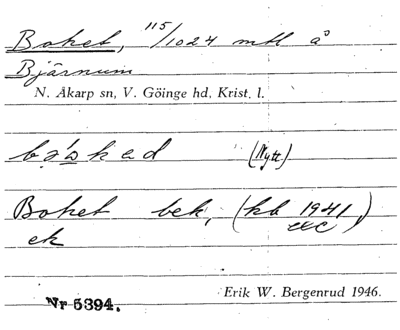 Boket, 115/1024 mtl å
Bjärnum
N. Åkarp sn, V. Göinge hd, Krist. l.
(Nytt)
Boket bek, (kb 1941,)
ek etc
Nr 5394. Erik W. Bergenrud 1946.